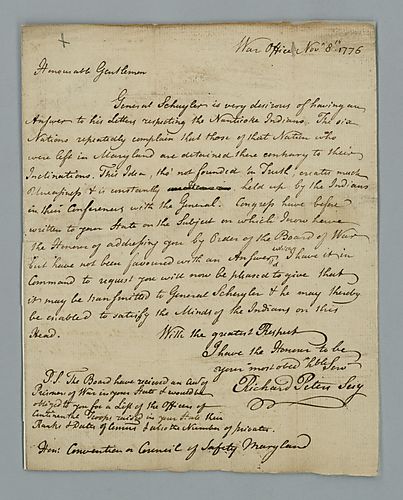 War Office Nov.r 8th 1776
Honourable Gentlemen
General Schuyler is very desirous of having an
Answer to his Letters respecting the Nanticoke Indians. The six
Nations repeatedly complain that those of that Nation who
were left in Maryland are detained there contrary to their
Inclinations. This Idea, tho' not founded in Truth, creates much
Uneasiness & is constantly held up by the Indians
in their Conferences with the General. Congress have before
written to your State on the Subject on which I now have
the Honour of addressing you by Order of the Board of War
but have not been favoured with an Answer which I have it in
Command to request you will now be pleased to give that
it may be transmitted to General Schuyler & he may thereby
be enabled to satisfy the Minds of the Indians on this
Head. With the greatest Respect
I have the Honour to be
your most obed.t hble Serv
Richard Peters Secy
P.S. The Board have received an Acc.t of
Prisoners of War in your State & would be
obliged to you for a List of the Officers of
Continental Troops raised in your State their
Ranks & Dates of Comns & also the Number of privates.
Hon: Convention or Council of Safety Maryland